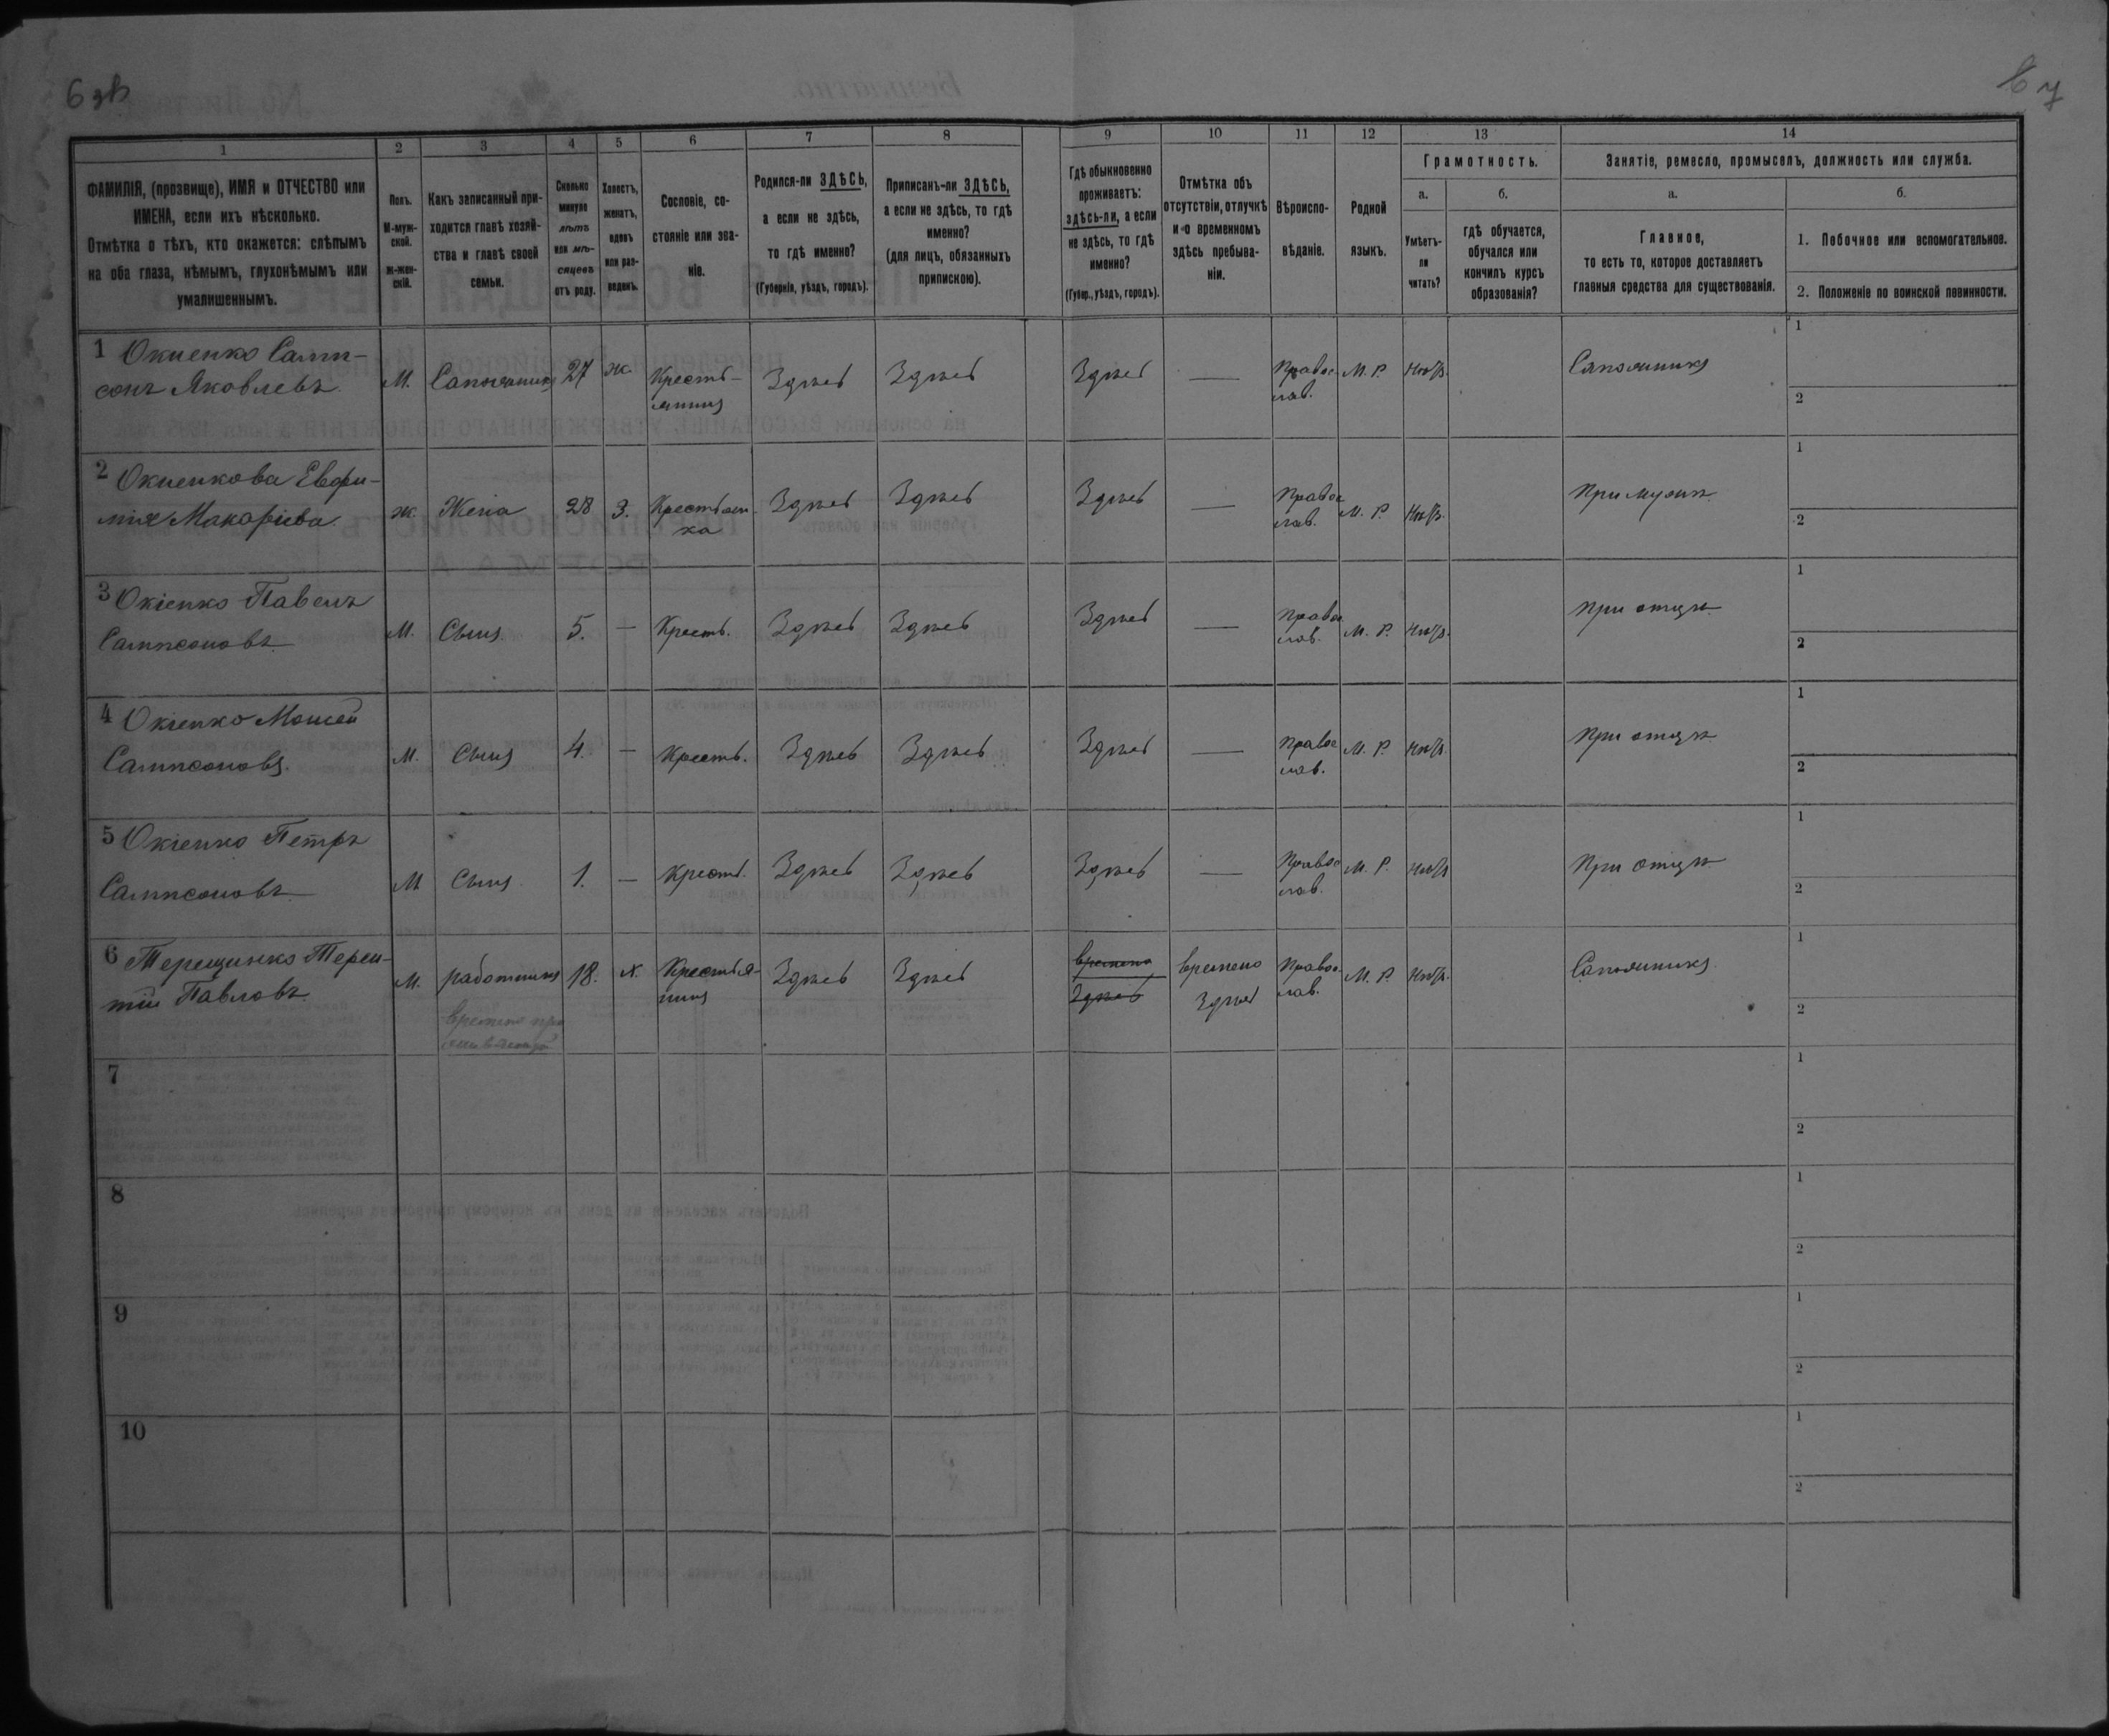 6 зв
67
1
2
3
4
5
6
7
8
9
10
11
12
13
14
ФАМИЛІЯ, (прозвище), ИМЯ и ОТЧЕСТВО или
ИМЕНА, если ихъ нѣсколько.
Отмѣтка о тѣхъ, кто окажется: слѣпымъ
на оба глаза, нѣмымъ, глухонѣмымъ или
умалишеннымъ.
Полъ.
М-муж-
ской.
Ж-жен-
скій.
Какъ записанный при-
ходится главѣ хозяй-
ства и главѣ своей
семьи.
Сколько
минуло
лѣтъ
или мѣ-
сяцевъ
отъ роду.
Холостъ,
женатъ,
вдовъ
или раз-
веденъ.
Сословіе, со-
стояніе или зва-
ніе.
Родился-ли ЗДѢСЬ,
а если не здѣсь,
то гдѣ именно?
(Губернія, уѣздъ, городъ).
Приписанъ-ли ЗДѢСЬ,
а если не здѣсь, то гдѣ
именно?
(для лицъ, обязанныхъ
припискою).
Гдѣ обыкновенно
проживаетъ:
здѣсь-ли, а если
не здѣсь, то гдѣ
именно?
(Губер., уѣздъ, городъ).
Отмѣтка объ
отсутствіи, отлучкѣ
и о временномъ
здѣсь пребыва-
ніи.
Вѣроиспо-
вѣданіе.
Родной
языкъ.
Грамотность.
а.
Умѣетъ-
ли
читать?
б.
гдѣ обучается,
обучался или
кончилъ курсъ
образованія?
Занятіе, ремесло, промыселъ, должность или служба.
а.
Главное,
то есть то, которое доставляетъ
главныя средства для существованія.
б.
1. Побочное или вспомогательное.
2. Положеніе по воинской повинности.
1 Окиенко Самп-
сонъ Яковлевъ
М.
Сапожникъ
27
ж
Кресть-
янинъ
Здѣсь
Здѣсь
Здѣсь
—
Правос
лав.
М. Р.
Нѣтъ.
Сапожникъ
1
2
2 Окиенкова Евфи-
мія Макаріева
ж.
Жена
28
З.
Крестьян-
ка
Здѣсь
Здѣсь
Здѣсь
—
Правос
лав.
М. Р.
Нѣтъ.
При мужѣ
1
2
3 Окіенко Павелъ
Сампсоновъ
М.
Сынъ
5.
—
Кресть.
Здѣсь
Здѣсь
Здѣсь
—
Правос
лав.
М. Р.
Нѣтъ.
При отцѣ
1
2
4 Окіенко Моисей
Сампсоновъ.
М.
Сынъ
4.
—
Кресть.
Здѣсь
Здѣсь
Здѣсь
—
Правос
лав.
М. Р.
Нѣтъ.
При отцѣ
1
2
5 Окіенко Петръ
Сампсоновъ
М
Сынъ
1.
—
Кресть.
Здѣсь
Здѣсь
Здѣсь
—
Правос
лав.
М. Р.
Нѣтъ
При отцѣ
1
2
6 Терещинко Терен-
тій Павловъ
М.
работникъ
временно про
18.
х.
Крестья-
нинъ
Здѣсь
Здѣсь
времено
Здѣсь
времено
Здѣсь
Правос
лав.
М. Р.
Нѣтъ.
Сапожникъ
1
2
7
1
2
8
1
2
9
1
2
10
1
2